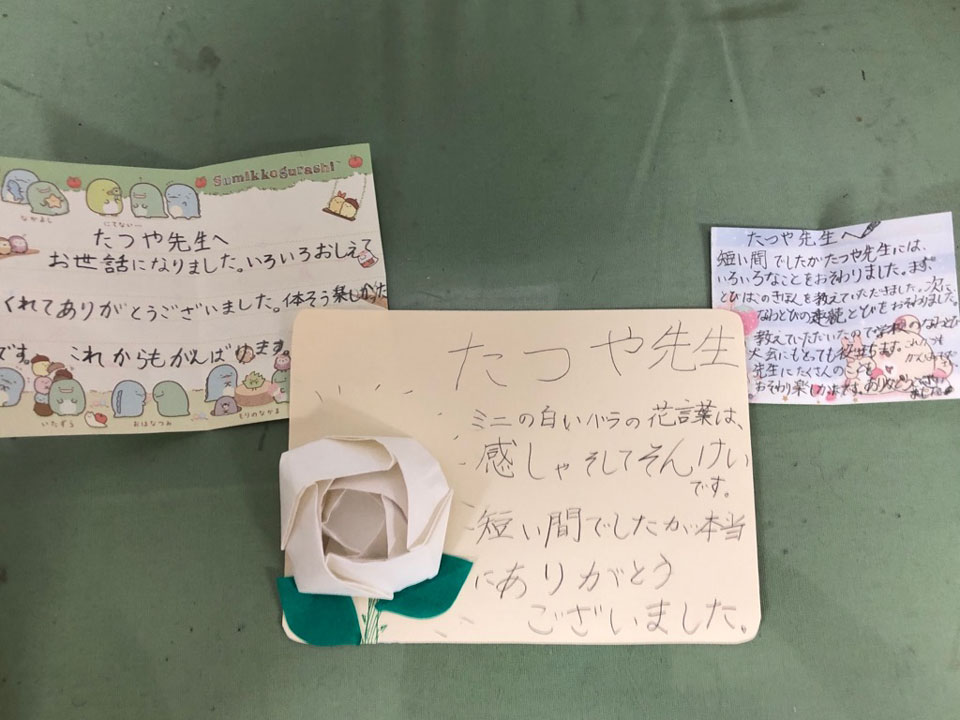 Sumikkogurashi
なかよし
にてない…
たつや先生へ
お世話になりました。いろいろおしえて
くれてありがとうございました。体そう楽しかった
です。 これからもがんばります。
いたずら
おはなつみ
もりのなかま
たつや先生
ミニの白いバラの花言葉は、
感しゃそしてそんけい
です。
短い間でしたが本当
にありがとう
ございました。
たつや先生へ
短い間でしたがたつや先生には、
いろいろなことをおそわりました。まず
とびばこのきほんを教えていただきました。次に
なわとびの連続とびもおそわりました。
教えていただいたので学校のなわとび
大会にもとても役立ちます。これからも
先生にたくさんのことを
おそわり楽しかったです。ありがとうござい
ました